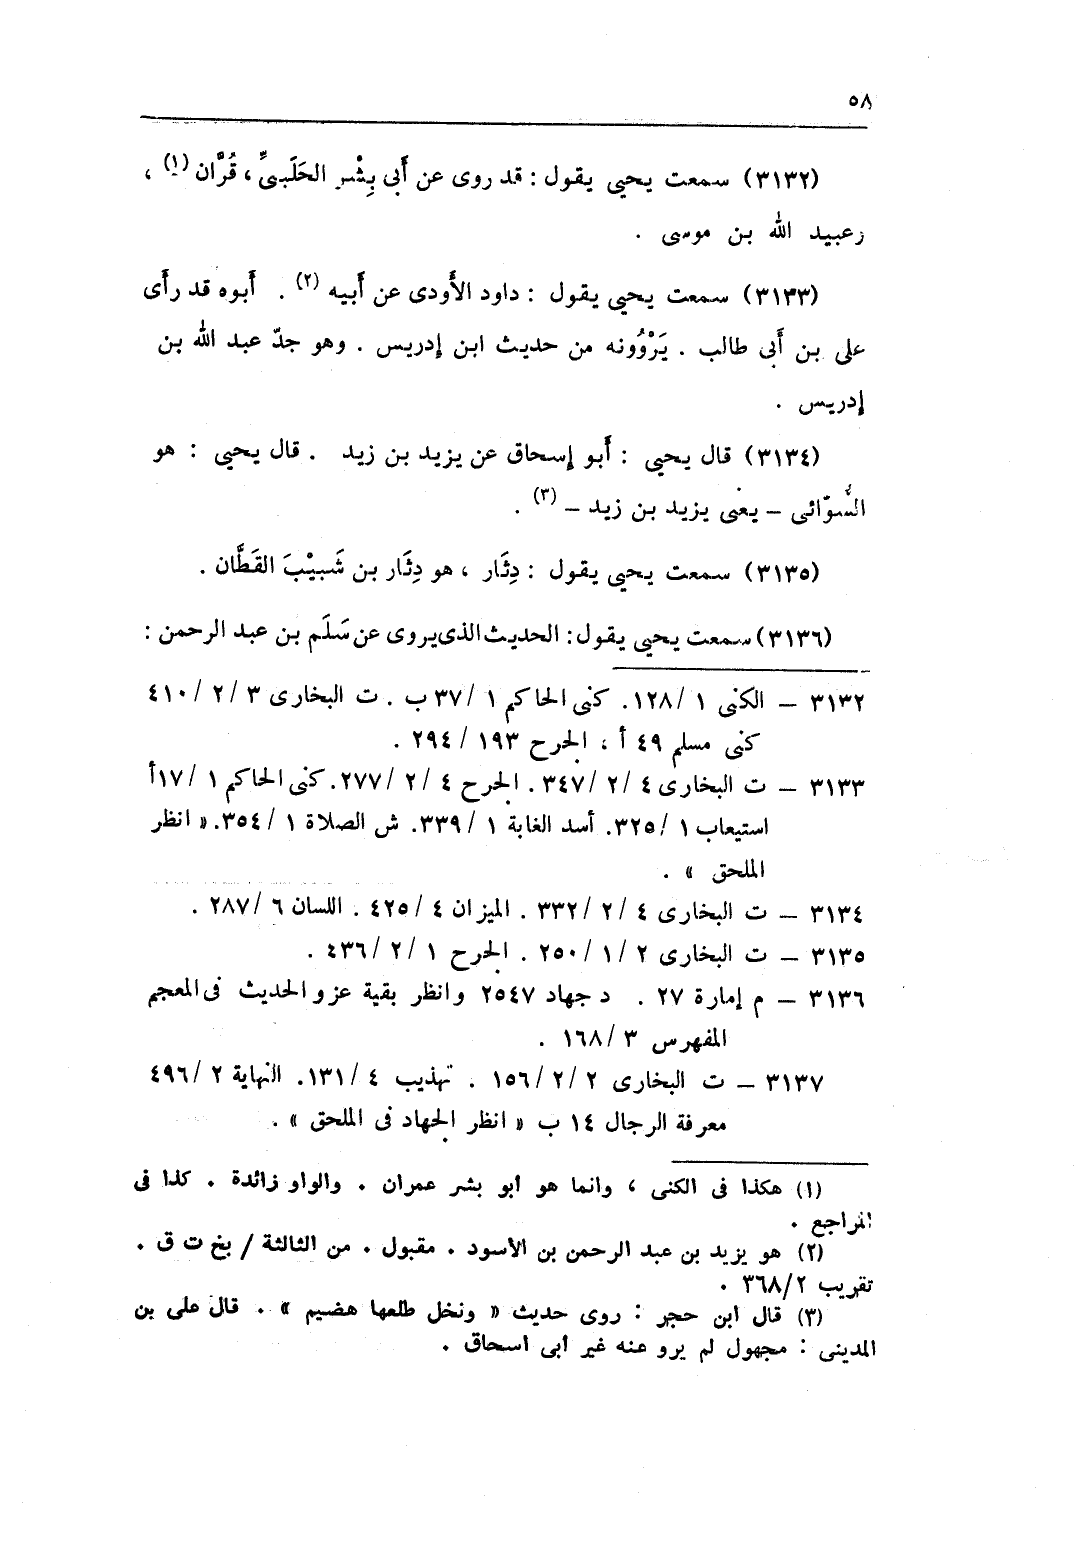 ٥٨
(٣١٣٢) سمعت يحيى يقول : قد روى عن أَبى بِشْر الحَلَبىِّ ، قُرَّان (١) ،
وعبيد الله بن موسى .
(٣١٣٣) سمعت يحيى يقول : داود الأَودى عن أَبيه (٢) . أَبوه قد رأَى
على بن أَبى طالب . يَرْوُونه من حديث ابن إدريس . وهو جدّ عبد الله بن
إدريس .
(٣١٣٤) قال يحيى : أَبو إسحاق عن يزيد بن زيد . قال يحيى : هو
السُّوَائى – يعنى يزيد بن زيد – (٣) .
(٣١٣٥) سمعت يحيى يقول : دِثَار ، هو دِثَار بن شَبِيْبَ القَطَّان .
(٣١٣٦) سمعت يحيى يقول : الحديث الذى يروى عن سَلَم بن عبد الرحمن :
٣١٣٢ – الكنى ١ /١٢٨. كنى الحاكم ١ /٣٧ ب . ت البخارى ٣ /٢ /٤١٠
كنى مسلم ٤٩ أ ، الجرح ١٩٣ /٢٩٤ .
٣١٣٣ – ت البخارى ٤ /٢ /٣٤٧. الجرح ٤ /٢ /٢٧٧. كنى الحاكم ١ /١٧أ
استيعاب ١ /٣٢٥. أسد الغابة ١ /٣٣٩. ش الصلاة ١ /٣٥٤. « انظر
الملحق » .
٣١٣٤ – ت البخارى ٤ /٢ /٣٣٢ . الميزان ٤ /٤٢٥ . اللسان ٦ /٢٨٧ .
٣١٣٥ – ت البخارى ٢ /١ /٢٥٠ . الجرح ١ /٢ /٤٣٦ .
٣١٣٦ – م إمارة ٢٧ . د جهاد ٢٥٤٧ وانظر بقية عزو الحديث فى المعجم
المفهرس ٣ /١٦٨ .
٣١٣٧ – ت البخارى ٢ /٢ /١٥٦ . تهذيب ٤ /١٣١. النهاية ٢ /٤٩٦
معرفة الرجال ١٤ ب « انظر الجهاد فى الملحق » .
(١) هكذا فى الكنى ، وانما هو ابو بشر عمران . والواو زائدة . كذا فى
المراجع .
(٢) هو يزيد بن عبد الرحمن بن الأسود . مقبول . من الثالثة / بخ ت ق .
تقريب ٣٦٨/٢ .
(٣) قال ابن حجر : روى حديث « ونخل طلعها هضيم » . قال على بن
المدينى : مجهول لم يرو عنه غير أبى اسحاق .